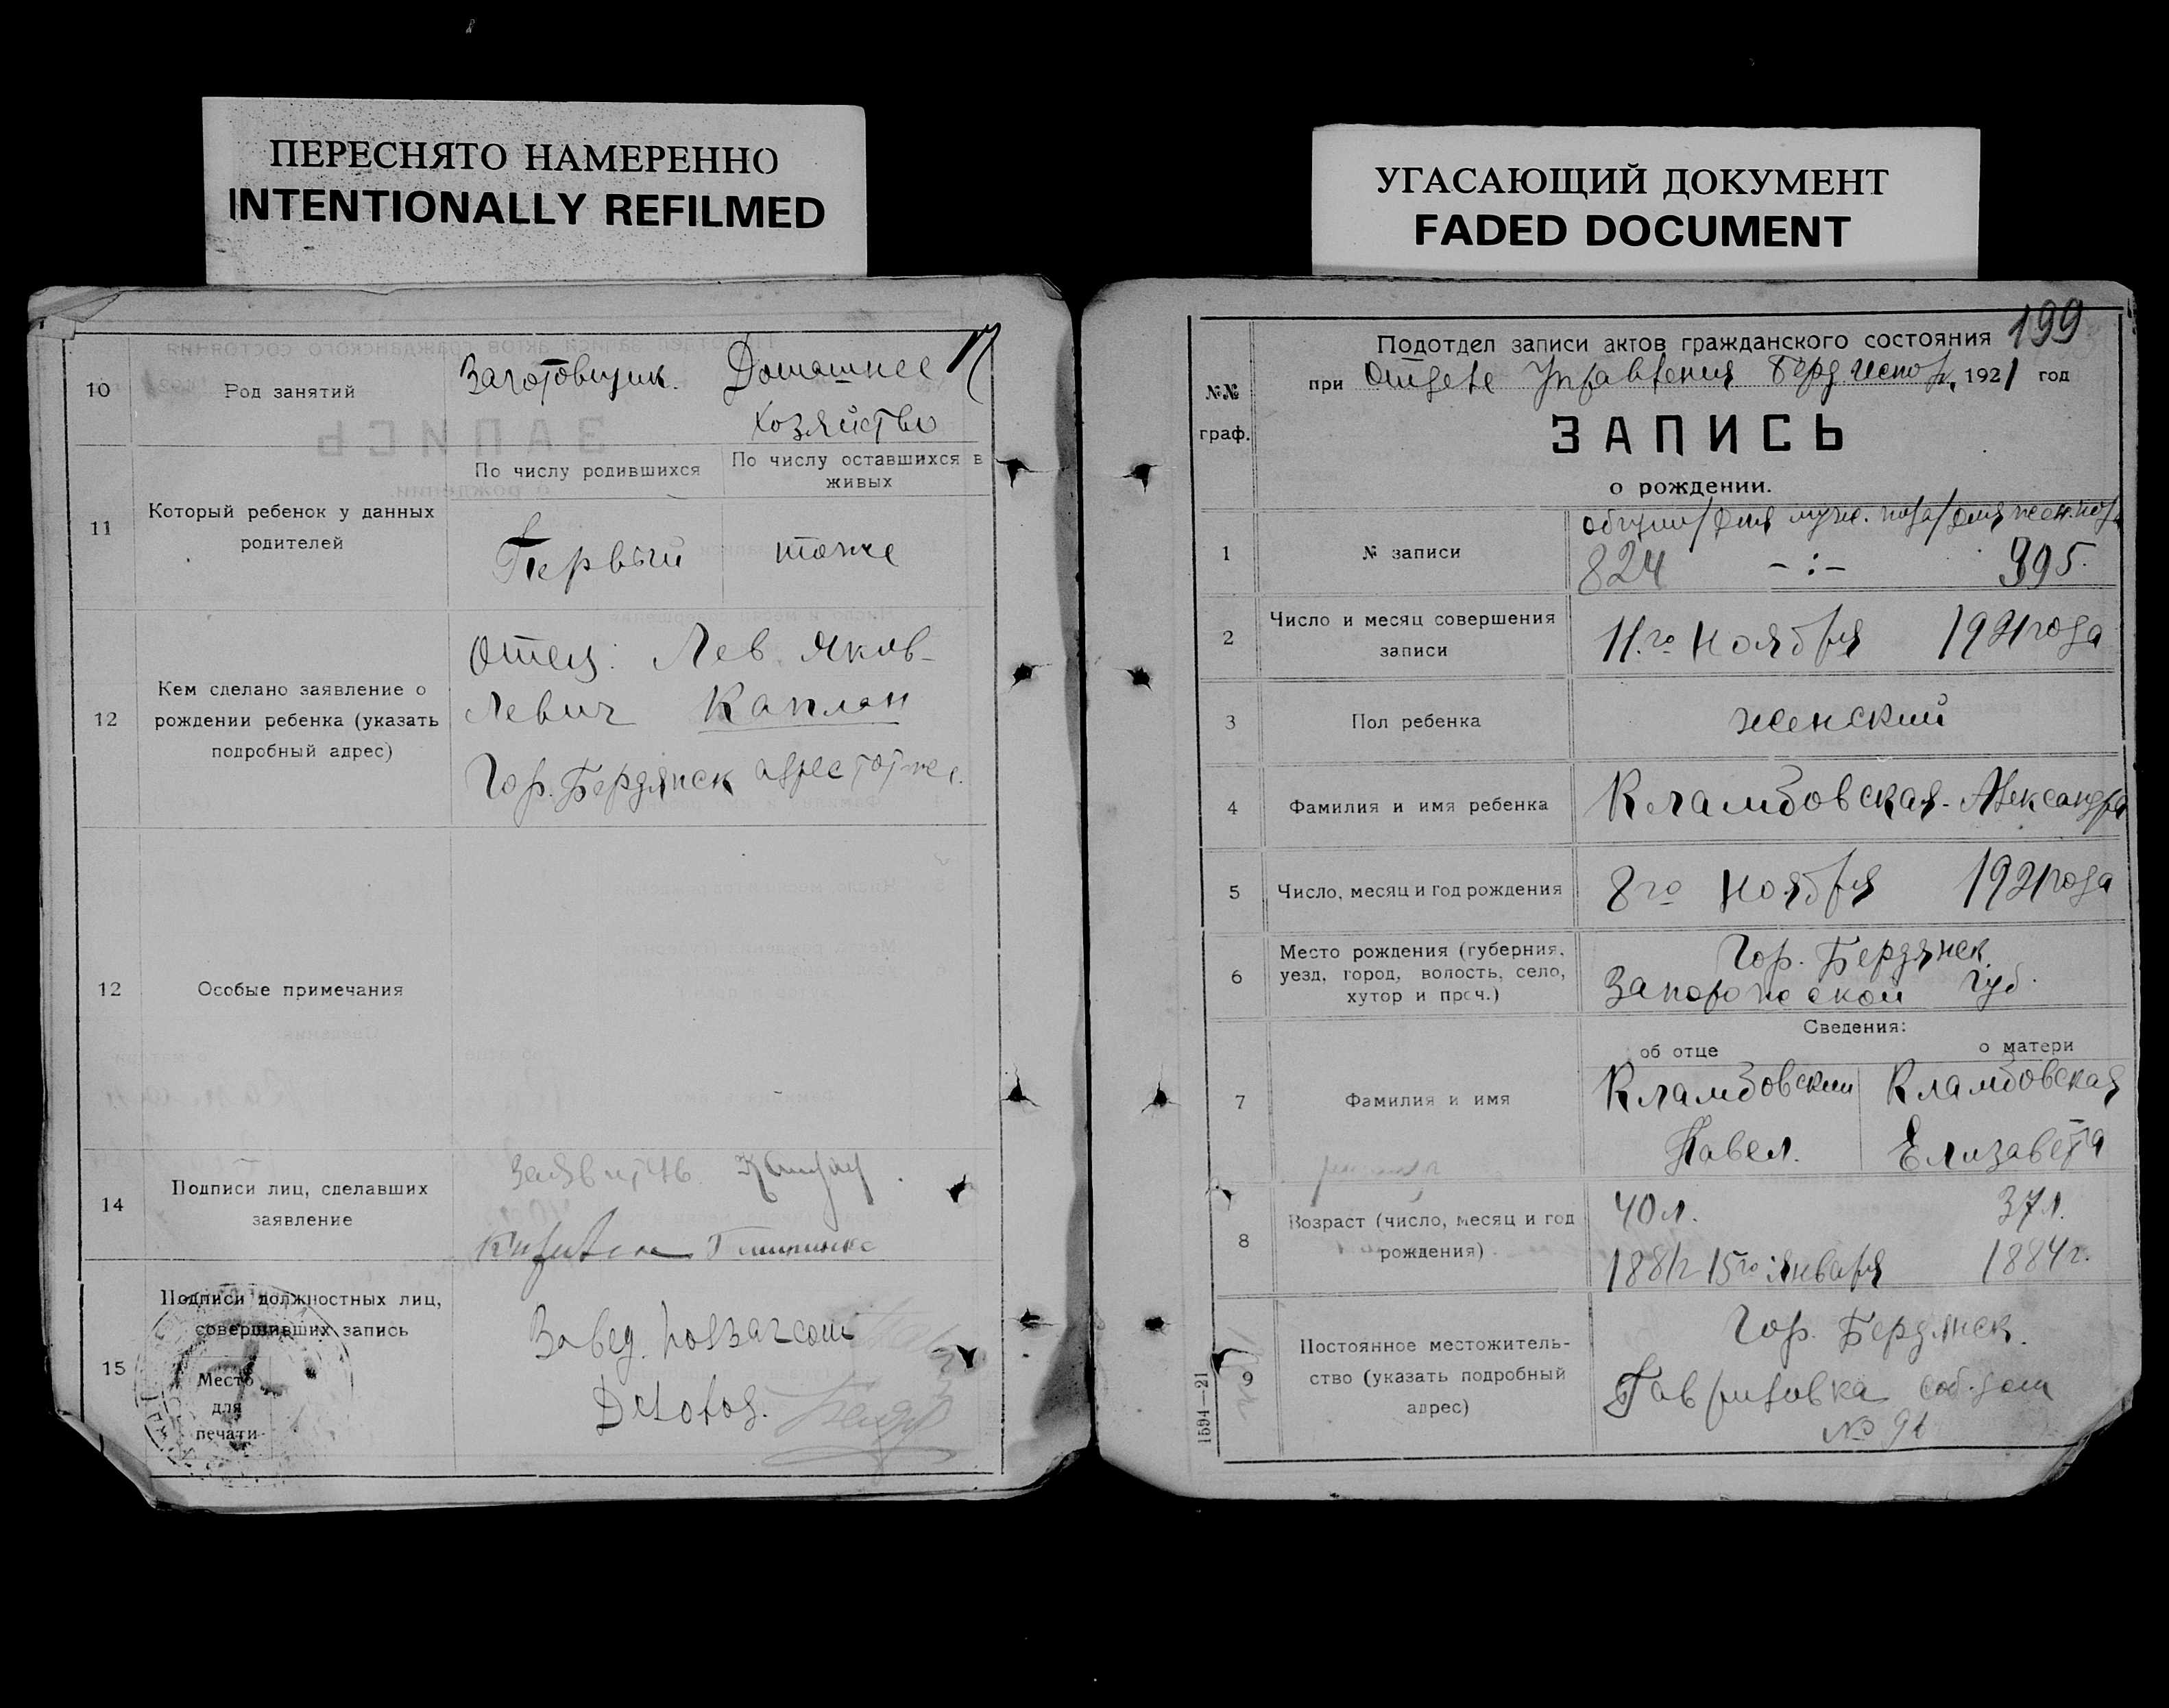 ПЕРЕСНЯТО НАМЕРЕННО
INTENTIONALLY REFILMED
10
Род занятий
Заготовщик.
Домашнее
хозяйство
11
Который ребенок у данных
родителей
По числу родившихся
По числу оставшихся в
живых
Первый
тоже
12
Кем сделано заявление о
рождении ребенка (указать
подробный адрес)
Отец: Лев Яков-
левич Каплан
Гор. Бердянск адрес тот же.
12
Особые примечания
14
Подписи лиц, сделавших
заявление
15
Подписи должностных лиц,
совершивших запись
Место
для
печати
Завед.
УГАСАЮЩИЙ ДОКУМЕНТ
FADED DOCUMENT
199
№№
граф.
Подотдел записи актов гражданского состояния
при Отделе Управления Берд. 1921 год
ЗАПИСЬ
о рождении.
1
№ записи
общий/для муж. пола/для жен. пола
824 -:- 395.
2
Число и месяц совершения
записи
11го Ноября 1921 года
3
Пол ребенка
женский
4
Фамилия и имя ребенка
Кламбовская-Александра
5
Число, месяц и год рождения
8го Ноября 1921 года
6
Место рождения (губерния,
уезд, город, волость, село,
хутор и проч.)
Гор. Бердянск
Запорожской Губ.
Сведения:
об отце
о матери
7
Фамилия и имя
Кламбовский
Павел.
Кламбовская
Елизавета
8
Возраст (число, месяц и год
рождения)
40 л.
1881г 15го Января
37 л.
1884 г.
9
Постоянное местожитель-
ство (указать подробный
адрес)
Гор. Бердянск.
соб. дом
№ 91
1594—21